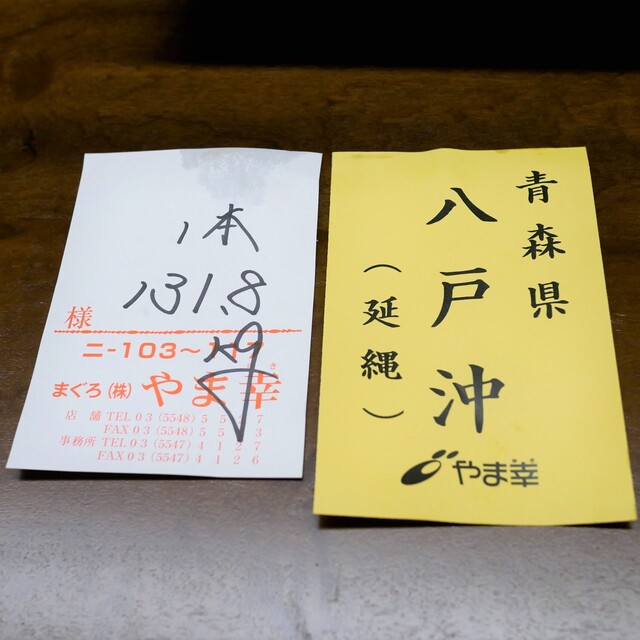 1本
131.8
kg
様
ニ-103〜117
まぐろ(株)やま幸
き
店 舗 TEL 03 (5548) 5 5 7
FAX 03 (5548) 5 5 3
事務所 TEL 03 (5547) 4 1 2 7
FAX 03 (5547) 4 1 2 6
青森県
八戸沖
(延縄)
やま幸